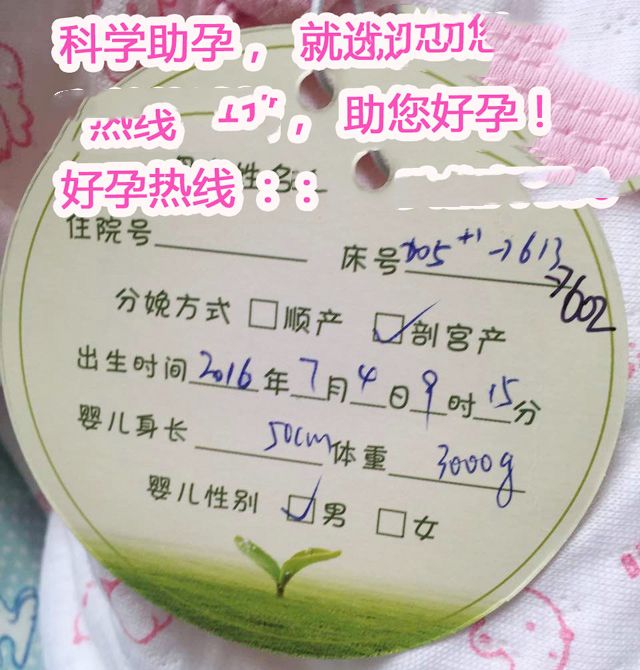 科学助孕，就选
热线，助您好孕！
好孕热线：：
姓名
住院号
床号705+1→613
→602
分娩方式□顺产☑剖宫产
出生时间2016年7月4日9时15分
婴儿身长50cm体重3000g
婴儿性别☑男□女